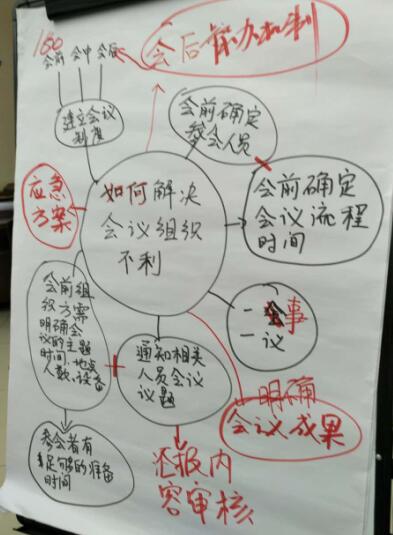 180
会前 会中 会后
会后催办机制
建立会议
制度
会前确定
参会人员
应急
方案
如何解决
会议组织
不利
会前确定
会议流程
时间
会前组
织方案
明确会
议的主题
时间、地点
人数、设备
通知相关
人员会议
议题
一事
一议
明确
会议成果
参会者有
足够的准备
时间
汇报内
容审核